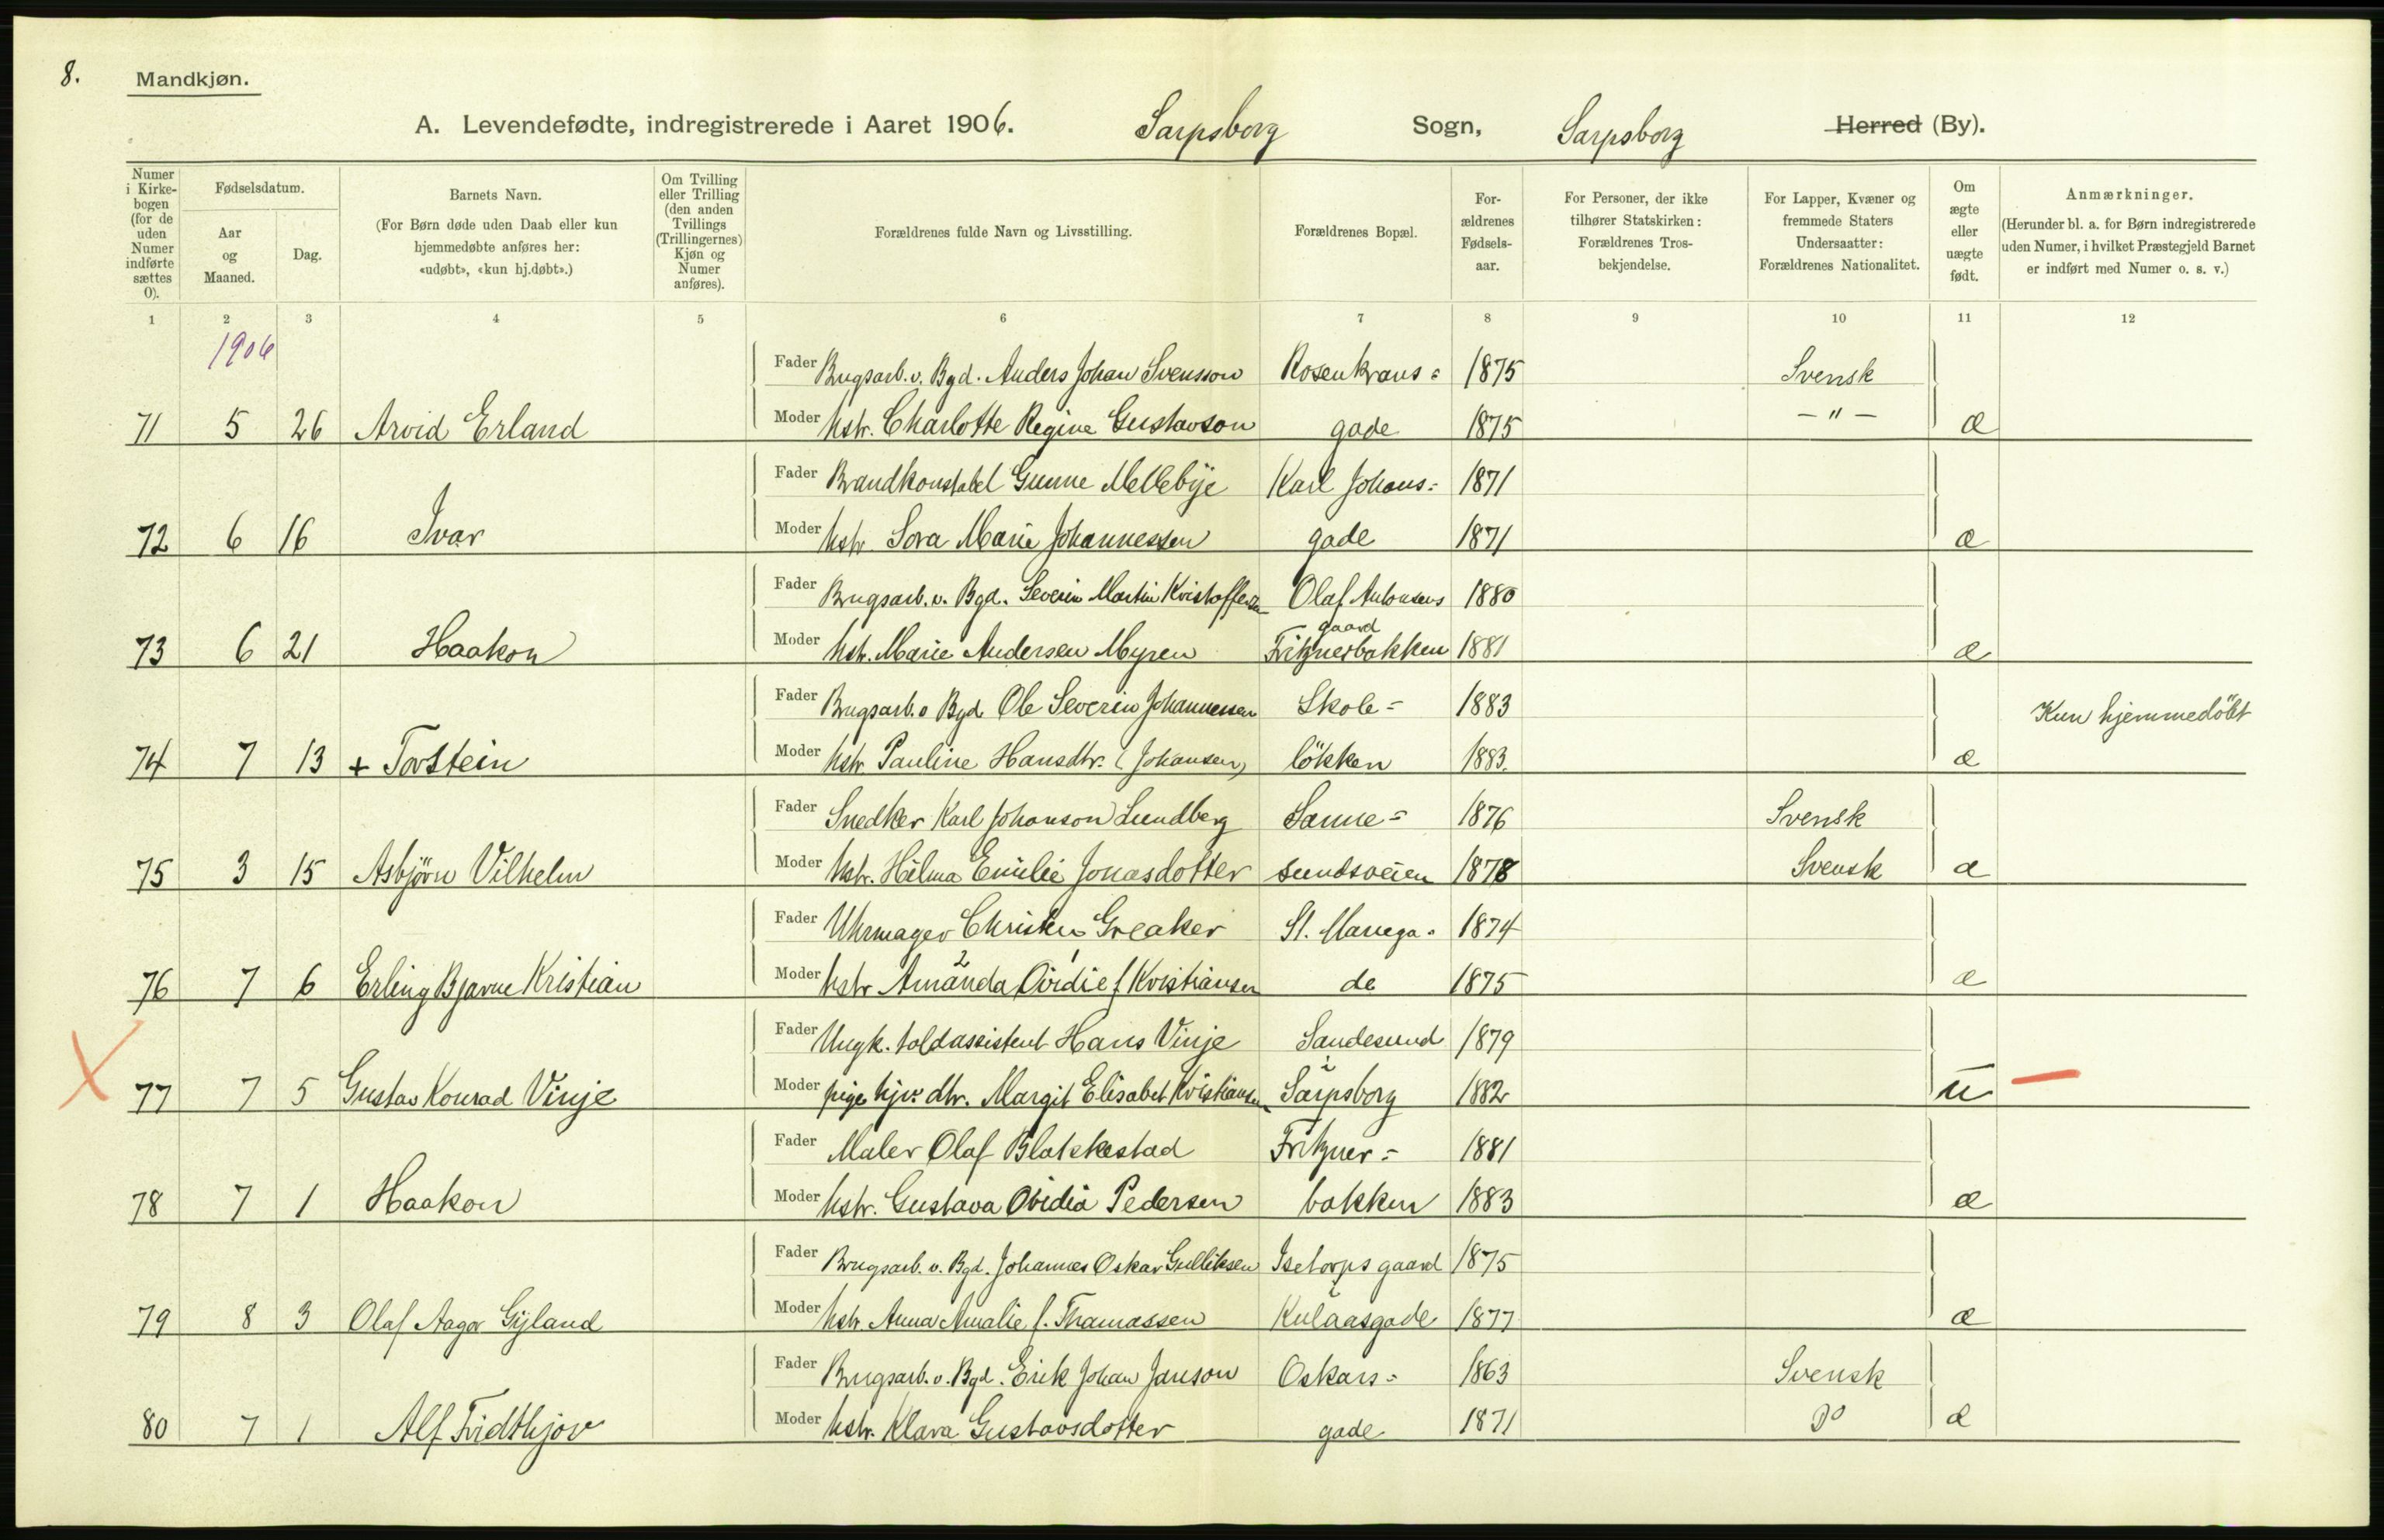 8.
Mandkjøn.
A. Levendefødte, indregistrerede i Aaret 1906. Sarpsborg Sogn, Sarpsborg Herred (By).
Numer i Kirkebogen (for de uden Numer indførte sættes 0).
Fødselsdatum.
Aar og Maaned.
Dag.
Barnets Navn.
(For Børn døde uden Daab eller kun hjemmedøbte anføres her: «udøbt», «kun hj.døbt».)
Om Tvilling eller Trilling (den anden Tvillings (Trillingernes) Kjøn og Numer anføres).
Forældrenes fulde Navn og Livsstilling.
Forældrenes Bopæl.
Forældrenes Fødselsaar.
For Personer, der ikke tilhører Statskirken: Forældrenes Trosbekjendelse.
For Lapper, Kvæner og fremmede Staters Undersaatter: Forældrenes Nationalitet.
Om ægte eller uægte født.
Anmærkninger.
(Herunder bl. a. for Børn indregistrerede uden Numer, i hvilket Præstegjeld Barnet er indført med Numer o. s. v.)
1 2 3 4 5 6 7 8 9 10 11 12
1906
Fader Brugsarb. v. Bgd. Anders Johan Svensson Rosenkrans= 1875 Svensk
71 5 26 Arvid Erland Moder hstr. Charlotte Regine Gustavson gade 1875 – " – æ
Fader Brandkonstabel Gunne Mellebÿe Karl Johans= 1871
72 6 16 Ivar Moder hstr Sora Marie Johannessen gade 1871 æ
Fader Brugsarb. v. Bgd. Severin Martin Kristoffersen Olaf Antonsens gaard 1880
73 6 21 Haakon Moder hstr. Marie Andersen Myren Fritznerbakken 1881 æ
Fader Brugsarb. v Bgd Ole Severin Johannessen Skole= 1883 Kun hjemmedöbt
74 7 13 + Torstein Moder hstr. Pauline Hansdtr. (Johansen) lökken 1883. æ
Fader Snedker Karl Johanson Lundberg Sanne= 1876 Svensk
75 3 15 Asbjörn Vilhelm Moder hstr. Hilma Emilie Jonasdotter sundsveien 1878 Svensk æ
Fader Uhrmager Christen Greaker St. Mariega= 1874
76 7 6 Erling Bjarne Kristian Moder hstr Amanda Ovidie f Kristiansen de 1875 æ
Fader Ungk. toldassistent Hans Vinje Sandesund 1879
77 7 5 Gustav Konrad Vinje Moder pige hjv. dtr. Margit Elisabet Kristiansen i Sarpsborg 1882 u
Fader Maler Olaf Blakkestad Fritzner= 1881
78 7 1 Haakon Moder hstr. Gustava Ovidia Pedersen bakken 1883 æ
Fader Brugsarb. v. Bgd. Johannes Oskar Gulliksen Isetorps gaard 1875
79 8 3 Olaf Aage Gÿland Moder hstr. Anna Amalie f. Thomassen Kulaasgade 1877 æ
Fader Brugsarb. v. Bgd. Erik Johan Janson Oskars= 1863 Svensk
80 7 1 Alf Fridthjov Moder hstr. Klara Gustavsdotter gade 1871 Do æ